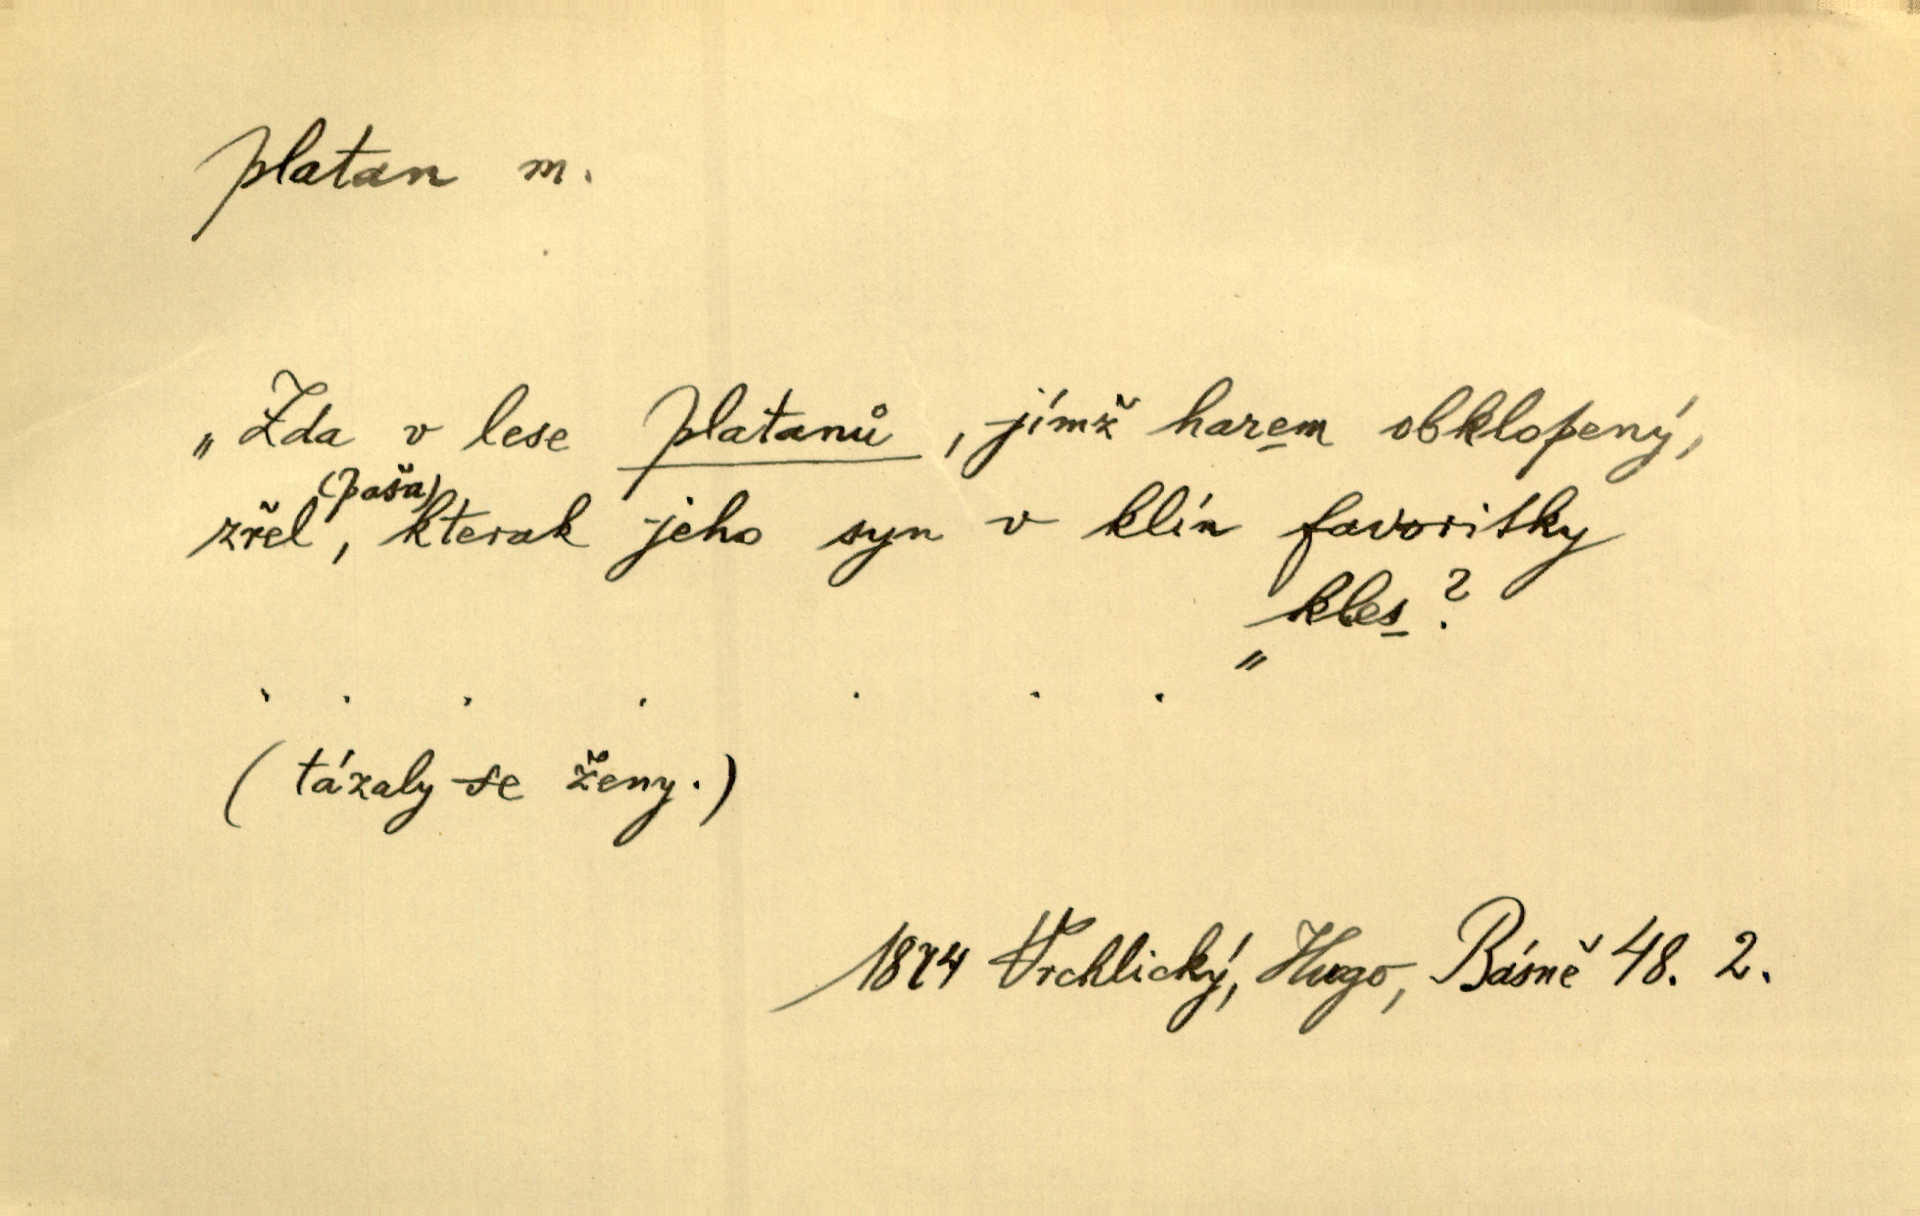 platan m.
„Zda v lese platanů, jímž harem obklopený,
(paša)
zřel, kterak jeho syn v klín favoritky
kles?
. . . . . . . "
(tázaly se ženy.)
1874 Vrchlický, Hugo, Básně 48. 2.